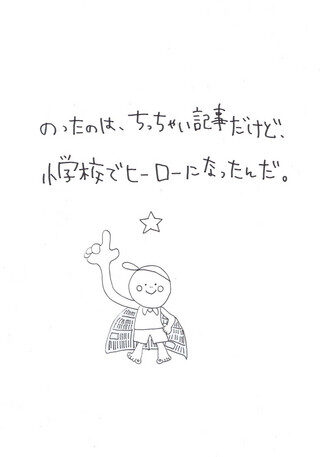 のったのは、ちっちゃい記事だけど、
小学校でヒーローになったんだ。